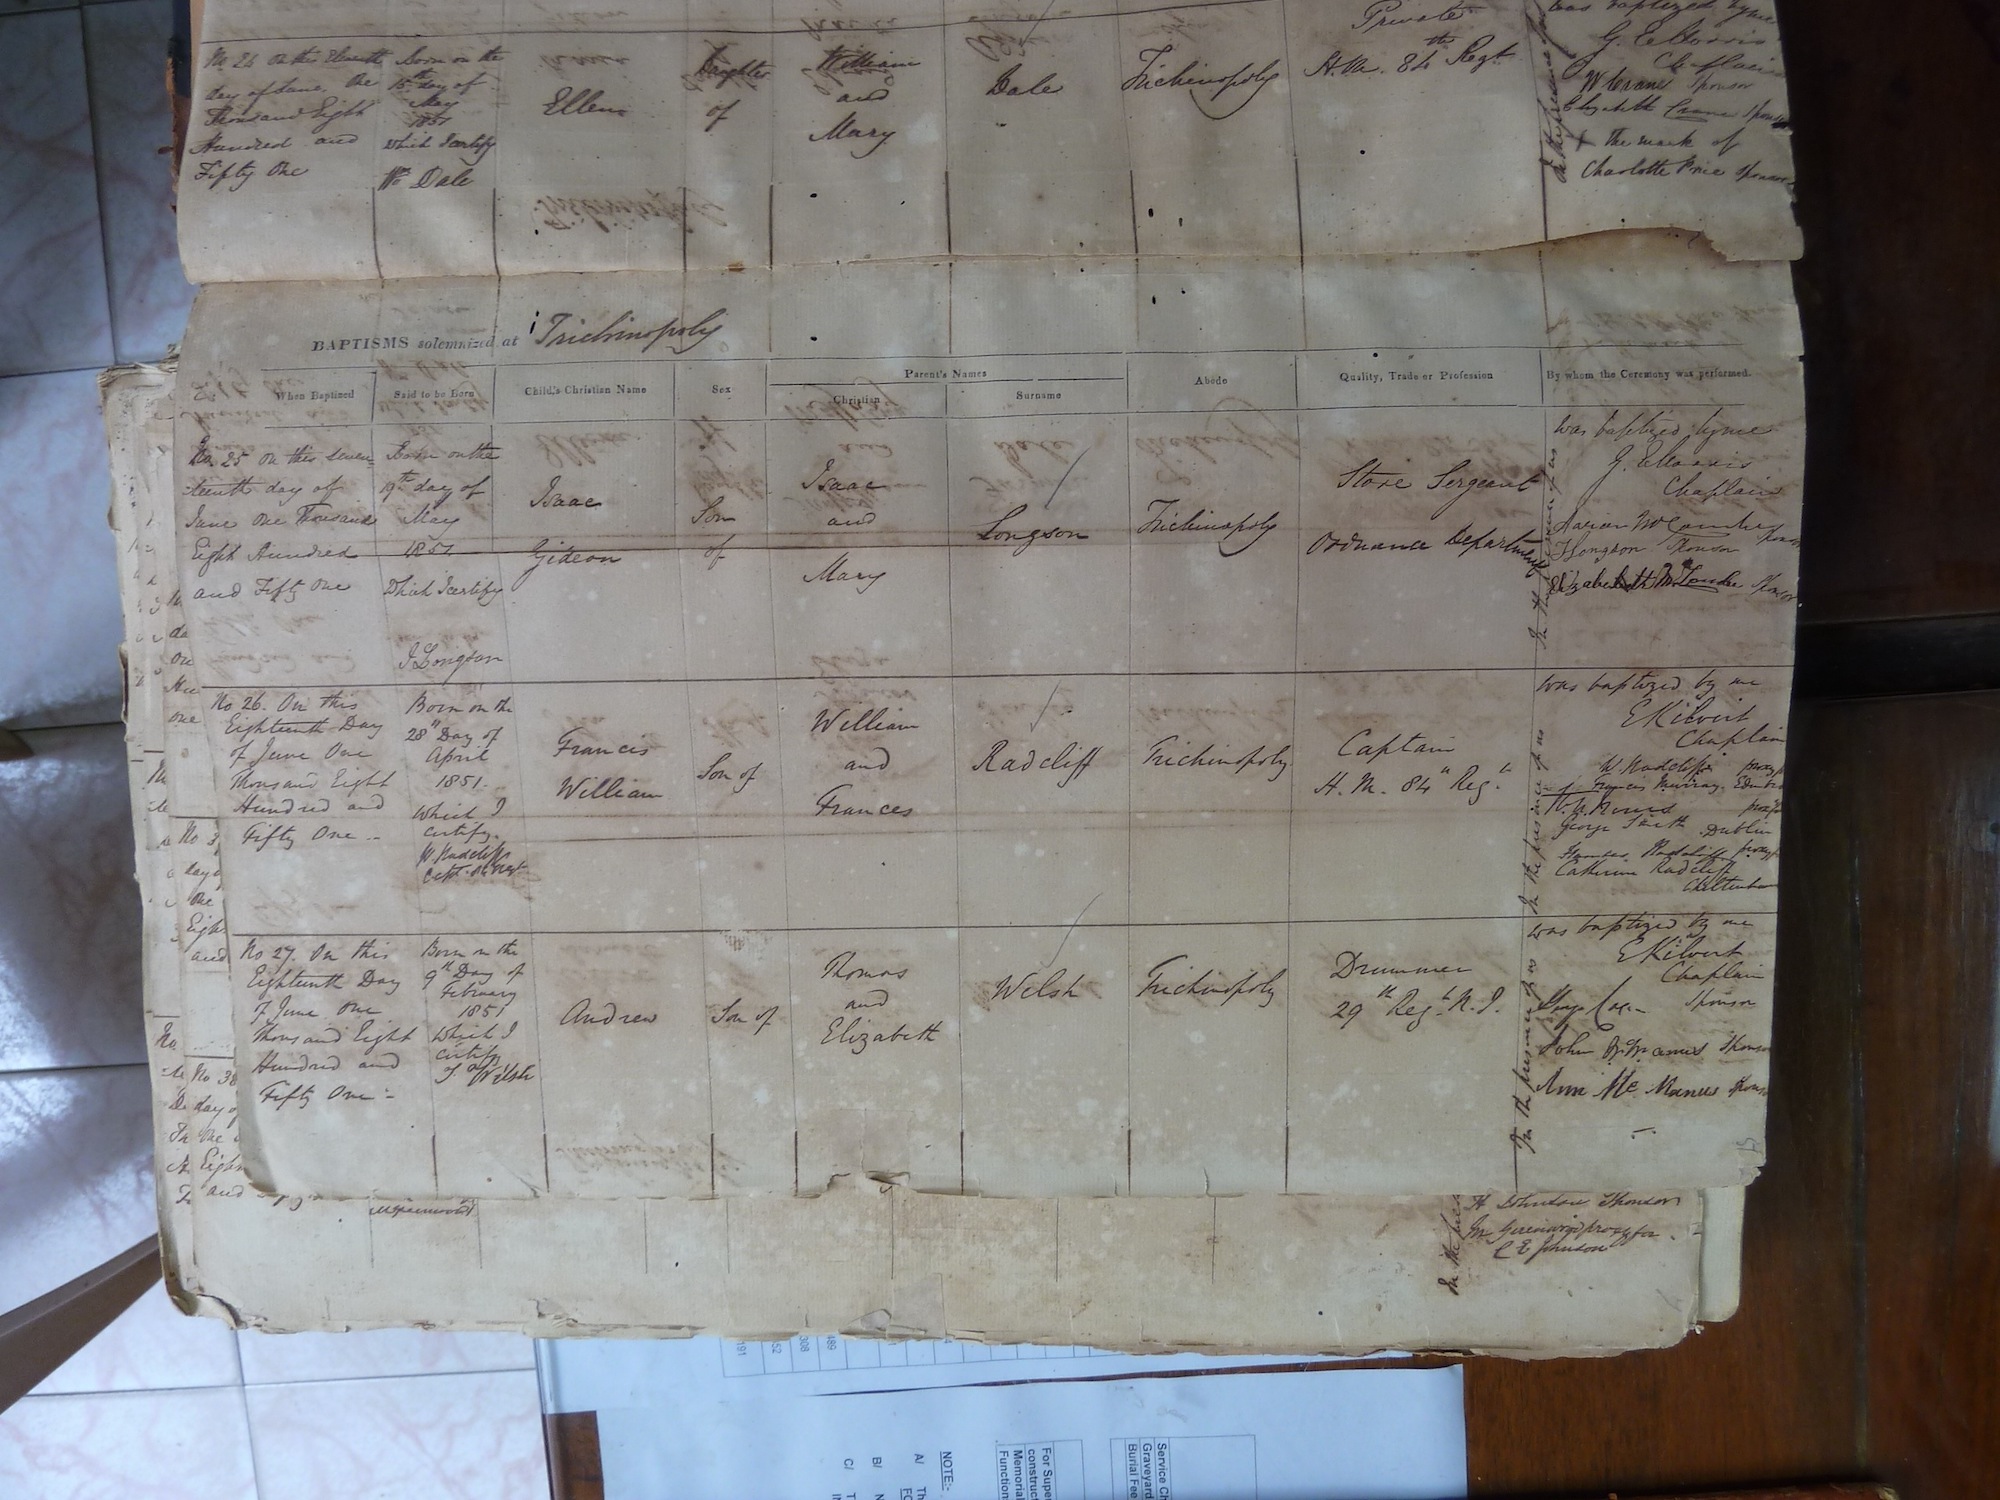 Private
was baptized by me
No. 24 On this Eleventh
day of June One
Thousand Eight
Hundred and
Fifty One
Born on the
15th day of
May
1851
which I certify
Wm Dale
Ellen
Daughter
of
William
and
Mary
Dale
Trichinopoly
H.M. 84th Regt
G. E. Morris
Chaplain
W Crane Sponsor
Elizabeth Crane Sponsor
X the mark of
Charlotte Price Sponsor
In the presence of us
BAPTISMS solemnized at Trichinopoly
When Baptized
Said to be Born
Child's Christian Name
Sex
Parent's Names
Christian
Surname
Abode
Quality, Trade or Profession
By whom the Ceremony was performed.
No. 25 On this Seven-
teenth day of
June One Thousand
Eight Hundred
and Fifty One
Born on the
19th day of
May
1851
Which I certify
I Longson
Isaac
Gideon
Son
of
Isaac
and
Mary
Longson
Trichinopoly
Store Sergeant
Ordnance Department
was baptized by me
G. E. Morris
Chaplain
Sponsor
Longson Sponsor
Elizabeth Sponsor
In the presence of us
No 26. On this
Eighteenth Day
of June One
Thousand Eight
Hundred and
Fifty One –
Born on the
28" Day of
April
1851.
which I
certify.
W. Radcliff
Capt. 84 Regt
Francis
William
Son of
William
and
Frances
Radcliff
Trichinopoly.
Captain
H. M. 84" Regt
was baptized by me
E Kilvert
Chaplain
W. Radcliff proxy
Francis Murray
proxy
George Smith Dublin
Frances Radcliff proxy
Catherine Radcliff
Cheltenham
In the presence of us
No 27. On this
Eighteenth Day
of June one
Thousand Eight
Hundred and
Fifty One –
Born on the
9th Day of
February
1851
which I
certify
Welsh
Andrew
Son of
Thomas
and
Elizabeth
Welsh
Trichinopoly
Drummer
29th Regt N. I.
was baptized by me
E Kilvert
Chaplain
Sponsor
John Sponsor
Ann Mc Manus Sponsor
In the presence of us
H Johnson Sponsor
Greenwood proxy for
C E Johnson
In the
NOTE:-
A/
B/
C/
For Super
construct
Memorial
Function
Service Ch
Graveyard
Burial Fee
191
52
308
489